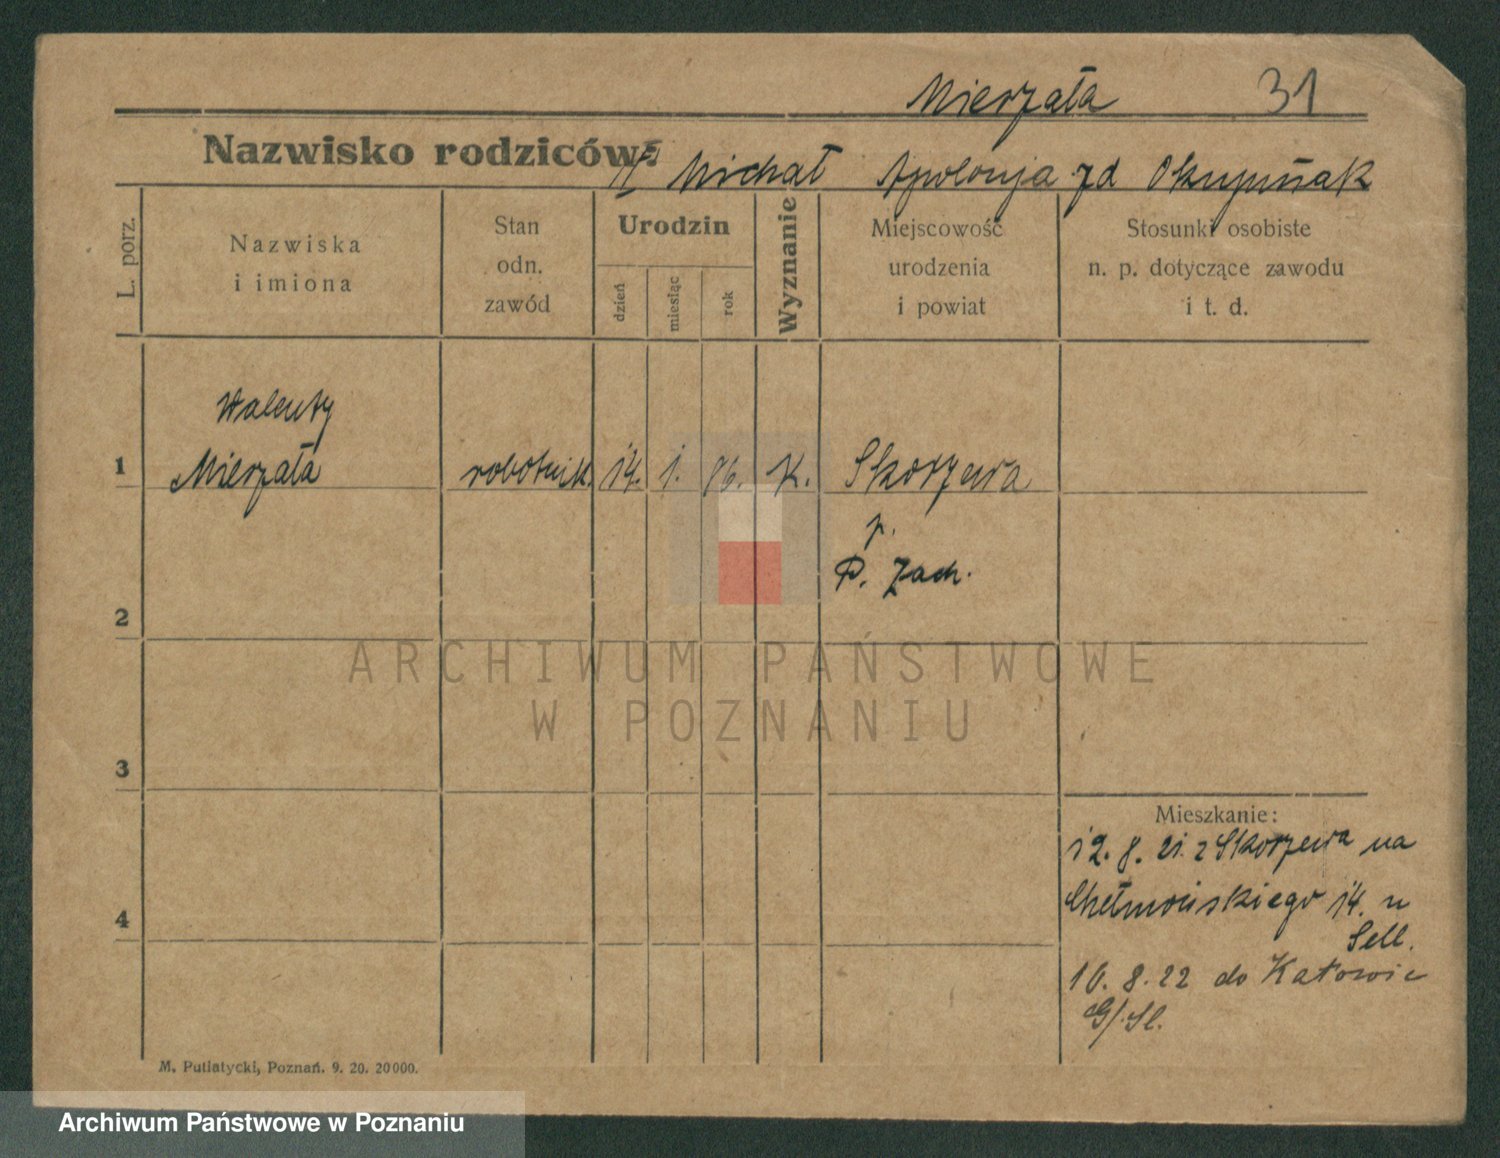 Mierzała 31
Nazwisko rodziców: Michał Apolonja zd Skrypińak
L. porz.
Nazwiska
i imiona
Stan
odn.
zawód
Urodzin
dzień
miesiąc
rok
Wyznanie
Miejscowość
urodzenia
i powiat
Stosunki osobiste
n. p. dotyczące zawodu
i t. d.
Walenty
1 Mierzała robotnik. 14. 1. 86. K. Skorzewa
p.
P. Zach.
2
ARCHIWUM PAŃSTWOWE
W POZNANIU
3
Mieszkanie:
12. 8. 21. z Skorzewa na
Chełmońskiego 14. u
Sell.
4
10. 8. 22 do Katowic
G/Sl.
M. Putiatycki, Poznań. 9. 20. 20000.
Archiwum Państwowe w Poznaniu